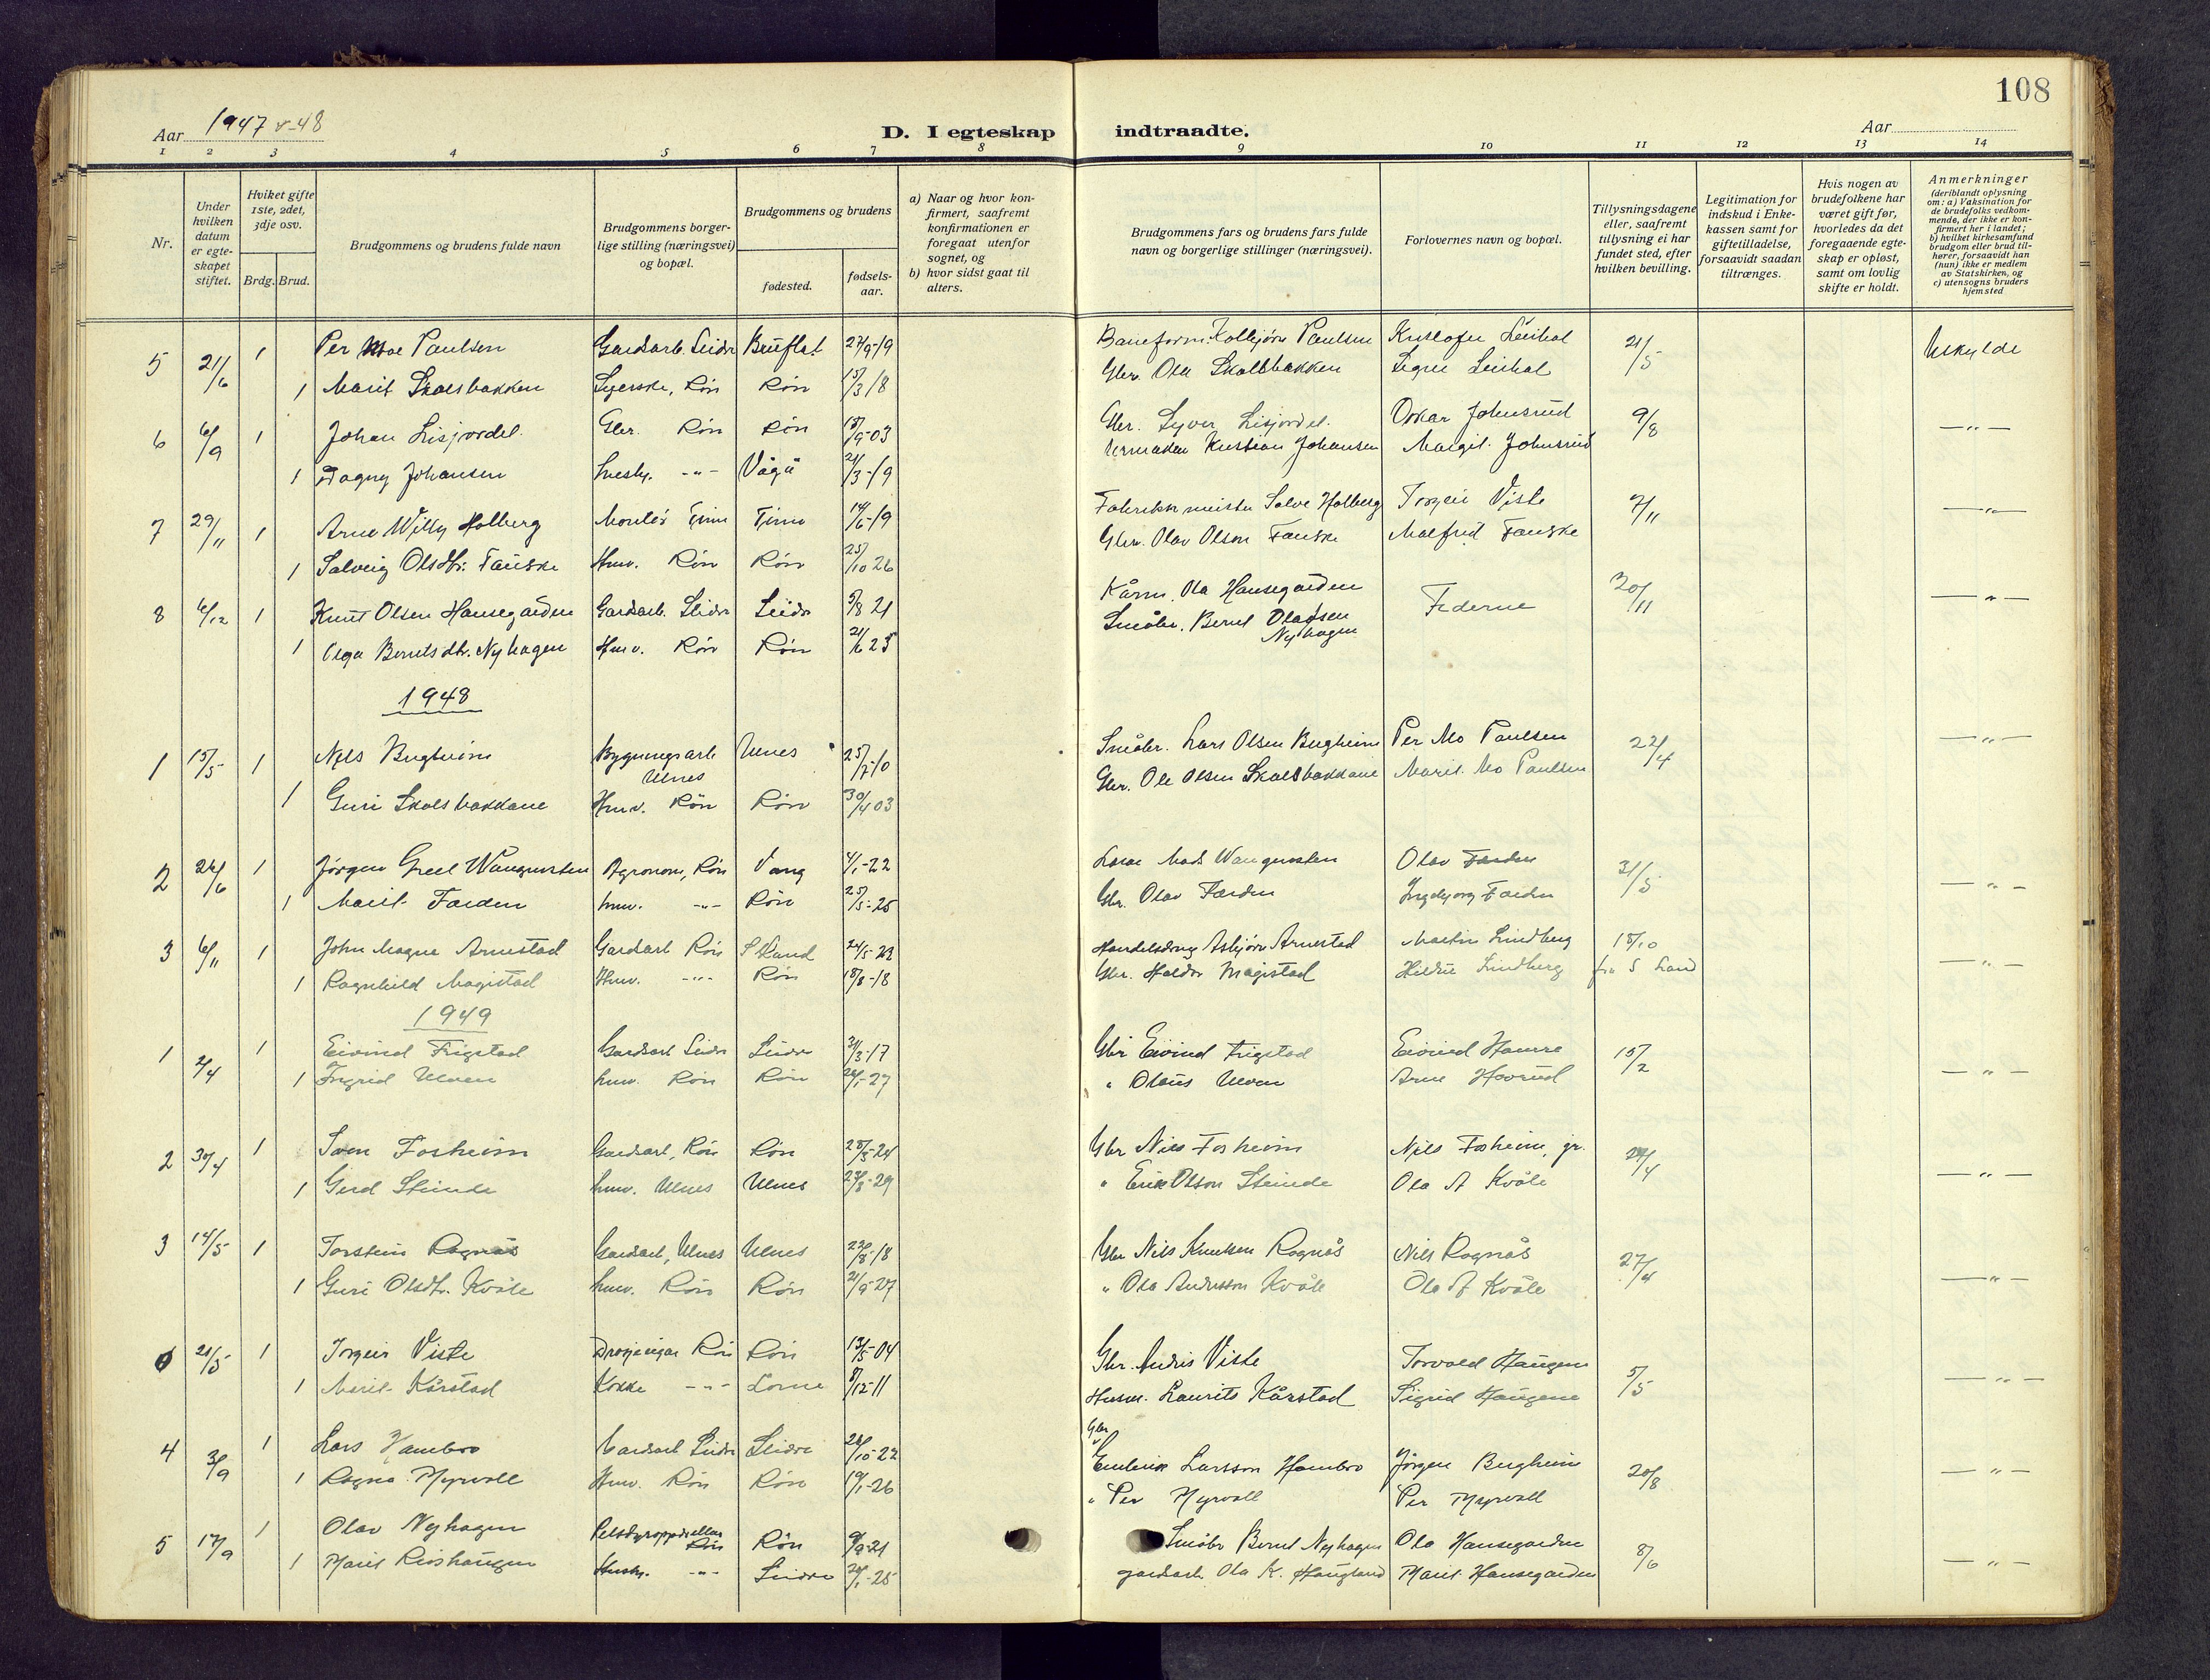 108
Aar 1947 & 48
D. I egteskap indtraadte.
Aar
1 2 3 4 5 6 7 8 9 10 11 12 13 14
Nr.
Under hvilken datum er egteskapet stiftet.
Hvilket gifte 1ste, 2det, 3dje osv.
Brdg. Brud.
Brudgommens og brudens fulde navn
Brudgommens borgerlige stilling (næringsvei) og bopæl.
Brudgommens og brudens
fødested.
fødselsaar.
a) Naar og hvor konfirmert, saafremt konfirmationen er foregaat utenfor sognet, og
b) hvor sidst gaat til alters.
Brudgommens fars og brudens fars fulde navn og borgerlige stillinger (næringsvei).
Forlovernes navn og bopæl.
Tillysningsdagene eller, saafremt tillysning ei har fundet sted, efter hvilken bevilling.
Legitimation for indskud i Enkekassen samt for giftetilladelse, forsaavidt saadan tiltrænges.
Hvis nogen av brudefolkene har været gift før, hvorledes da det foregaaende egteskap er opløst, samt om lovlig skifte er holdt.
Anmerkninger (deriblandt oplysning om: a) Vaksination for de brudefolks vedkommende, der ikke er konfirmert her i landet; b) hvilket kirkesamfund brudgom eller brud tilhører, forsaavidt han (hun) ikke er medlem av Statskirken, og c) utensogns bruders hjemsted
5 21/6 1 Per Moe Paulsen Gardsarb. Slidre Bruflat 27/9-19 Baneform. Kolbjørn Paulsen 21/5 Uskylde
1 Marit Skolsbakken Syerske, Røn Røn 15/3 18 Gbr. Ola Skolsbakken
6 6/9 1 Johan Lisjordet Gbr. Røn Røn 15/9-03 Gbr. Syver Lisjordet Oskar Johnsrud 9/8 — " —
1 Dagny Johansen Røn Vågå 21/3-19 Kristian Johansen Margit Johnsrud
7 29/11 1 Arne Willy Holberg Montør Tinn Tinn 14/6-19 Fabrikkmeister Salve Holberg Torgeir Viste 7/11 — " —
1 Solveig Olsdtr. Fauske Hmv. Røn Røn 25/10 26 Gbr. Olav Olson Fauske Malfrid Fauske
8 6/12 1 Knut Olsen Hansegarden Gardsarb. Slidre Slidre 5/8 21 Kårm. Ola Hansegården Federne 30/11 — " —
1 Olga Berntsdtr. Nyhagen Hmv. Røn Røn 21/6 25 Småbr. Bernt Oladsen Nyhagen
1948
1 15/5 1 Nils Bugheim Bygningsarb. Ulnes Ulnes 25/7-10 Småbr. Lars Olsen Bugheim Per Mo Paulsen 22/4 — " —
1 Guri Skolsbakkane Hmv. Røn Røn 30/4 03 Gbr. Ole Olsen Skolsbakkane Marit Mo Paulsen
2 26/6 1 Jørgen Agronom, Røn Vang 4/1-22 Olav Færden 31/5 — " —
1 Marit Færden hmv. - " - Røn 25/5-25 Gbr. Olav Færden Ingebjørg Færden
3 6/11 1 John Magne Arnestad Gardsarb Røn S Land 24/5-22 Asbjørn Arnestad Martin Lindberg 15/10 fra S Land — " —
1 Ragnhild Magistad Hmv. - " - Røn 15/8-18 Gbr. Haldor Magistad Lindberg
1949
1 2/4 1 Eivind Frigstad Gardsarb Slidre Slidre 31/3-17 Gbr Eivind Frigstad Eivind Hamre 15/2 — " —
1 Ingrid Ulven hmv. Røn Røn 26/1-27 " Olaus Ulven Arne Hovrud
2 30/4 1 Sven Fosheim Gardsarb, Røn Røn 28/5-24 Gbr Nils Fosheim Nils Fosheim, jr. — " —
1 Gerd Steinde hmv. Ulnes Ulnes 23/8-29 " Erik Olson Steinde Ola A Kvåle
3 14/5 1 Torstein Rognås Gardsarb, Ulnes Ulnes 23/8-18 Gbr Nils Knutsen Rognås Nils Rognås 27/4 — " —
1 Guri Olsdtr. Kvåle hmv. Røn Røn 21/9-27 " Ola Andersson Kvåle Ola A Kvåle
21/5 1 Torgeir Viste Røn Røn 13/5-04 Gbr. Andris Viste Torvald Haugen 5/5 — " —
1 Marit Kårstad Kokke - " - Lome 8/12-11 Husm. Laurits Kårstad Sigrid Haugene
4 3/9 1 Lars Hambro Gardsarb Slidre Slidre 26/10-22 Gbr Larsson Hambro Jørgen Bugheim 20/8 — " —
1 Ragna Myrvoll Hmv. Røn Røn 19/1-26 " Per Myrvoll Per Myrvoll
5 17/9 1 Olav Nyhagen Pelsdyroppdretter Røn Røn 9/9-21 Småbr Bernt Nyhagen Ola Hansegarden 8/6 — " —
1 Marit Hushj. - " - Slidre 26/1-25 gardsarb. Ola K. Haugland Marit Hansegarden